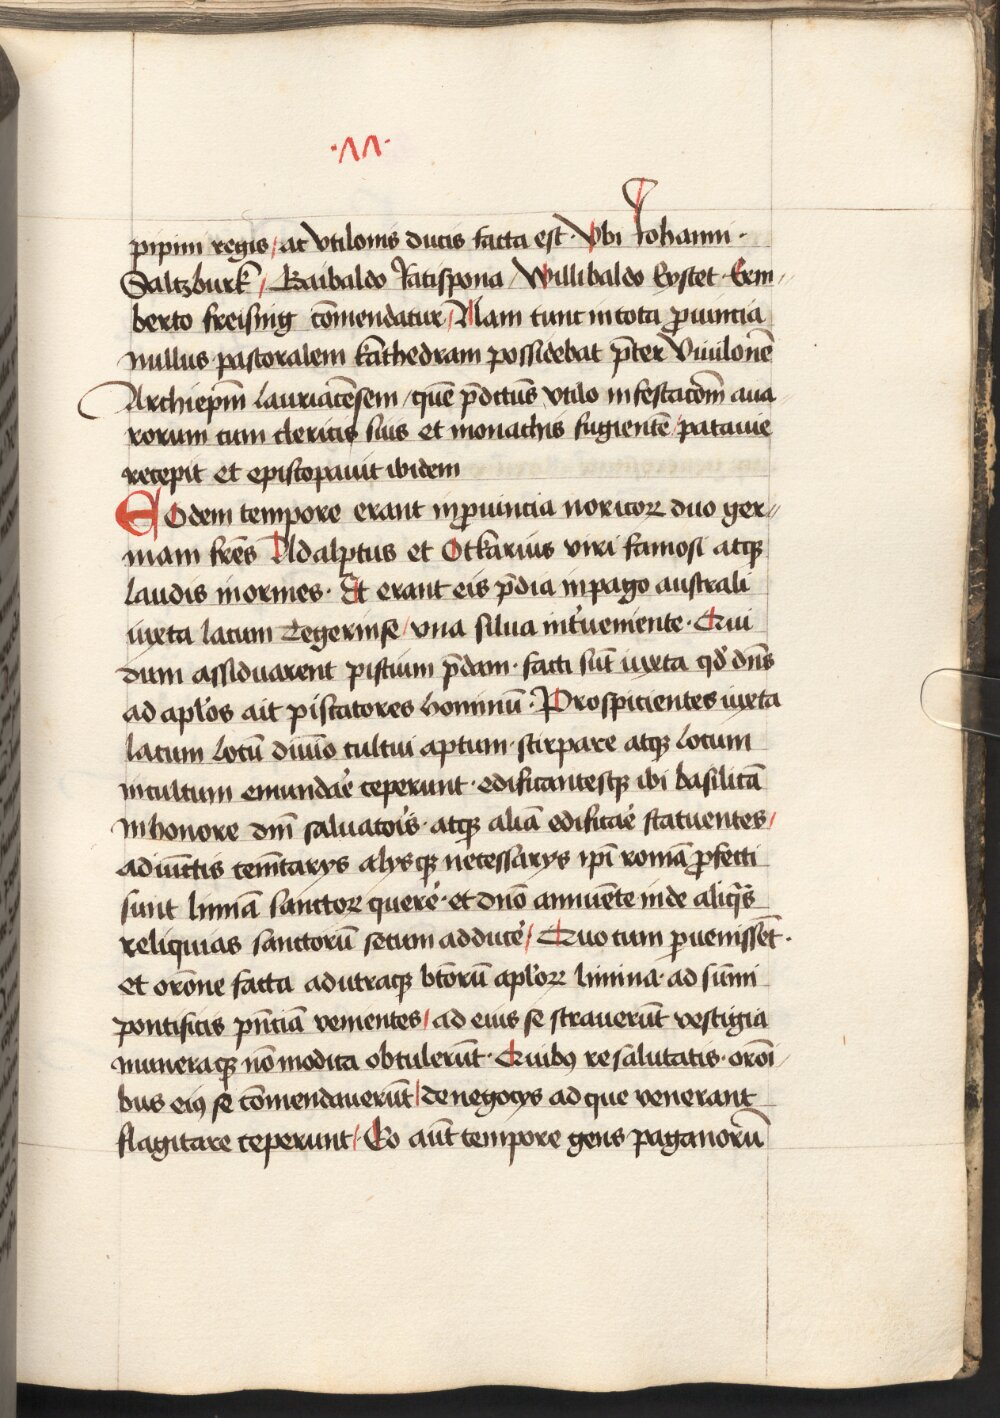 ·M·
pipini regis / ac vtilonis ducis facta est · Vbi Iohanni ·
Saltzburk̃ / Gaibaldo Ratispona / Willibaldo Eystet · Erm⸗
berto freising cōmendatur / Nam tunc in tota ꝓuincia
nullus pastoralem kathedram possidebat p̄ter Viuilonē
Archiep̄m Lauriacēsem / quē p̄dictus vtilo infestacōm̄ aua
rorum cum clericis suis et monachis fugientē / patauie
recepit et episcopauit ibidem
Eodem tempore erant in ꝓuincia noricoꝝ duo ger⸗
mani fr̄es Adalꝑtus et Otkarius viri famosi atqꝫ
laudis inormes · Et erant eis p̄dia in pago australi
iuxta lacum Tegerinse / vna silua int̾ueniente · Qui
dum assiduarent piscium p̄dam · facti sūt iuxta qd̾ dn̄s
ad apl̾os ait piscatores hominū · Prospicientes iuxta
lacum locū diuīo cultui aptum · stirpare atqꝫ locum
incultum emundar̾e ceperunt · edificantesqꝫ ibi basilicā
in honore dn̄i saluator̾is · atqꝫ aliā edificar̾e statuentes /
adiūctis cemētarys alysqꝫ necessarys ip̄i romā ꝓfecti
sunt liminā sanctoꝝ quere̾ · et dn̄o annuēte inde aliq̄s
reliquias sanctorū secum adduce̾ / Quo cum ꝑuenissēt ·
et orōne facta ad utraqꝫ bt̄orū apl̾oꝝ limina · ad sūmi
pontificis pn̄ciā venientes / ad eius se strauerūt vestigia
muneraqꝫ nō modica obtulerūt · Quibꝰ resalutatis · orōi⸗
bus eiꝰ se cōmendauerūt / de negocys ad que venerant
flagitare ceperunt / Eo aūt tempore gens paganorū